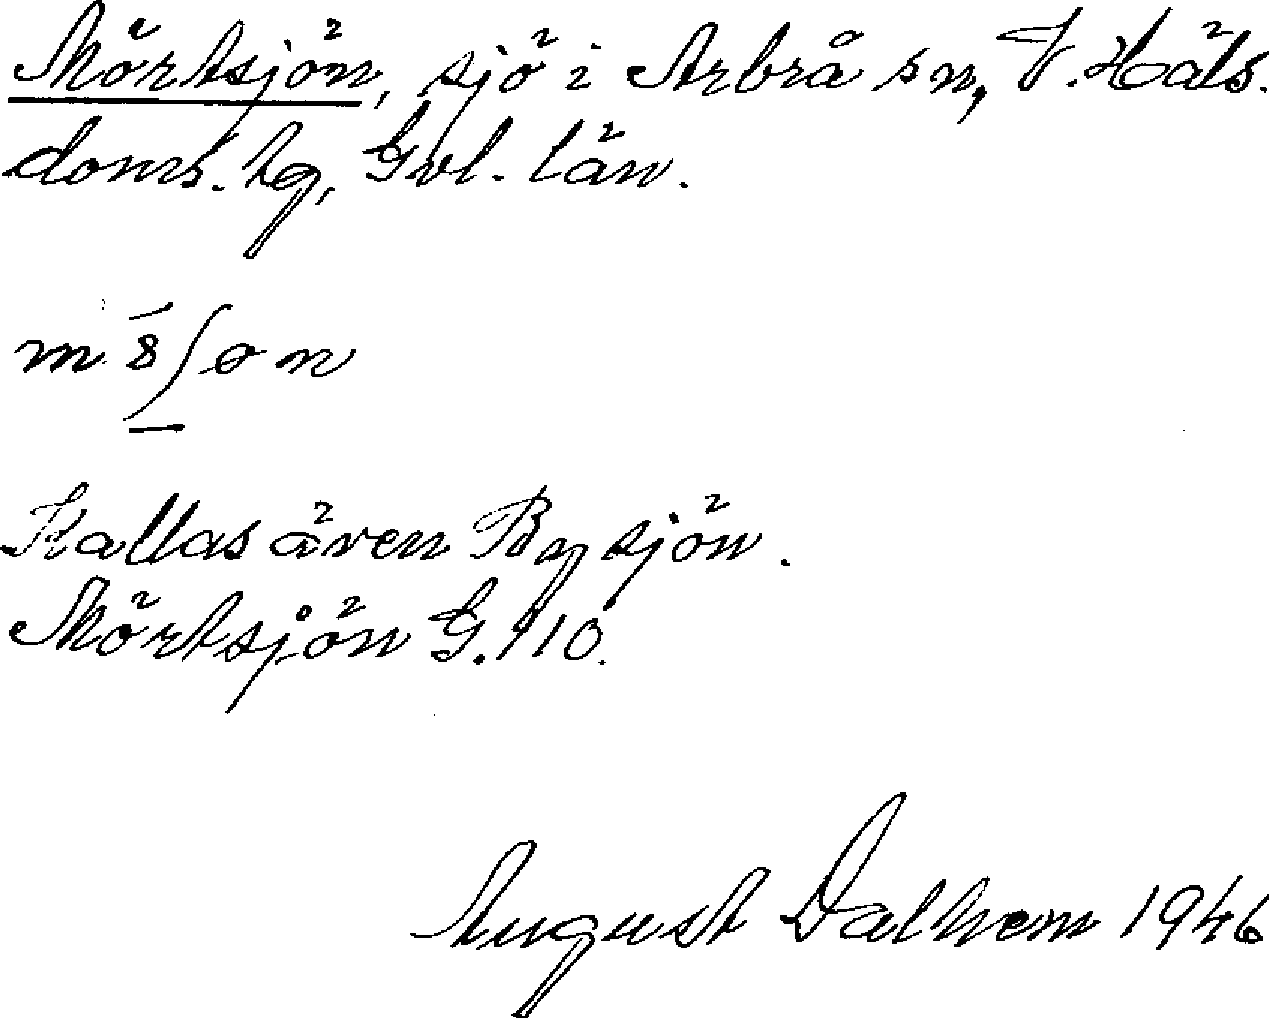 Mörtsjön, sjö i Arbrå sn, V. Häls.
doms. tg, Gvl. län.
Kallas även Bysjön.
Mörtsjön G. 110.
August Dalhem 1946